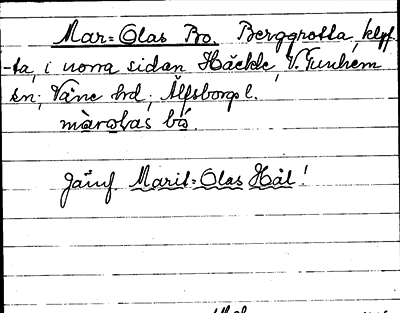 Mar=Olas Bo. Berggrotta, klyf-
-ta, i norra sidan Häckle, V. Tunhem
sn; Väne hrd; Älfsborgs l.
màrolas bó.
Jämf Marit=Olas Hål!